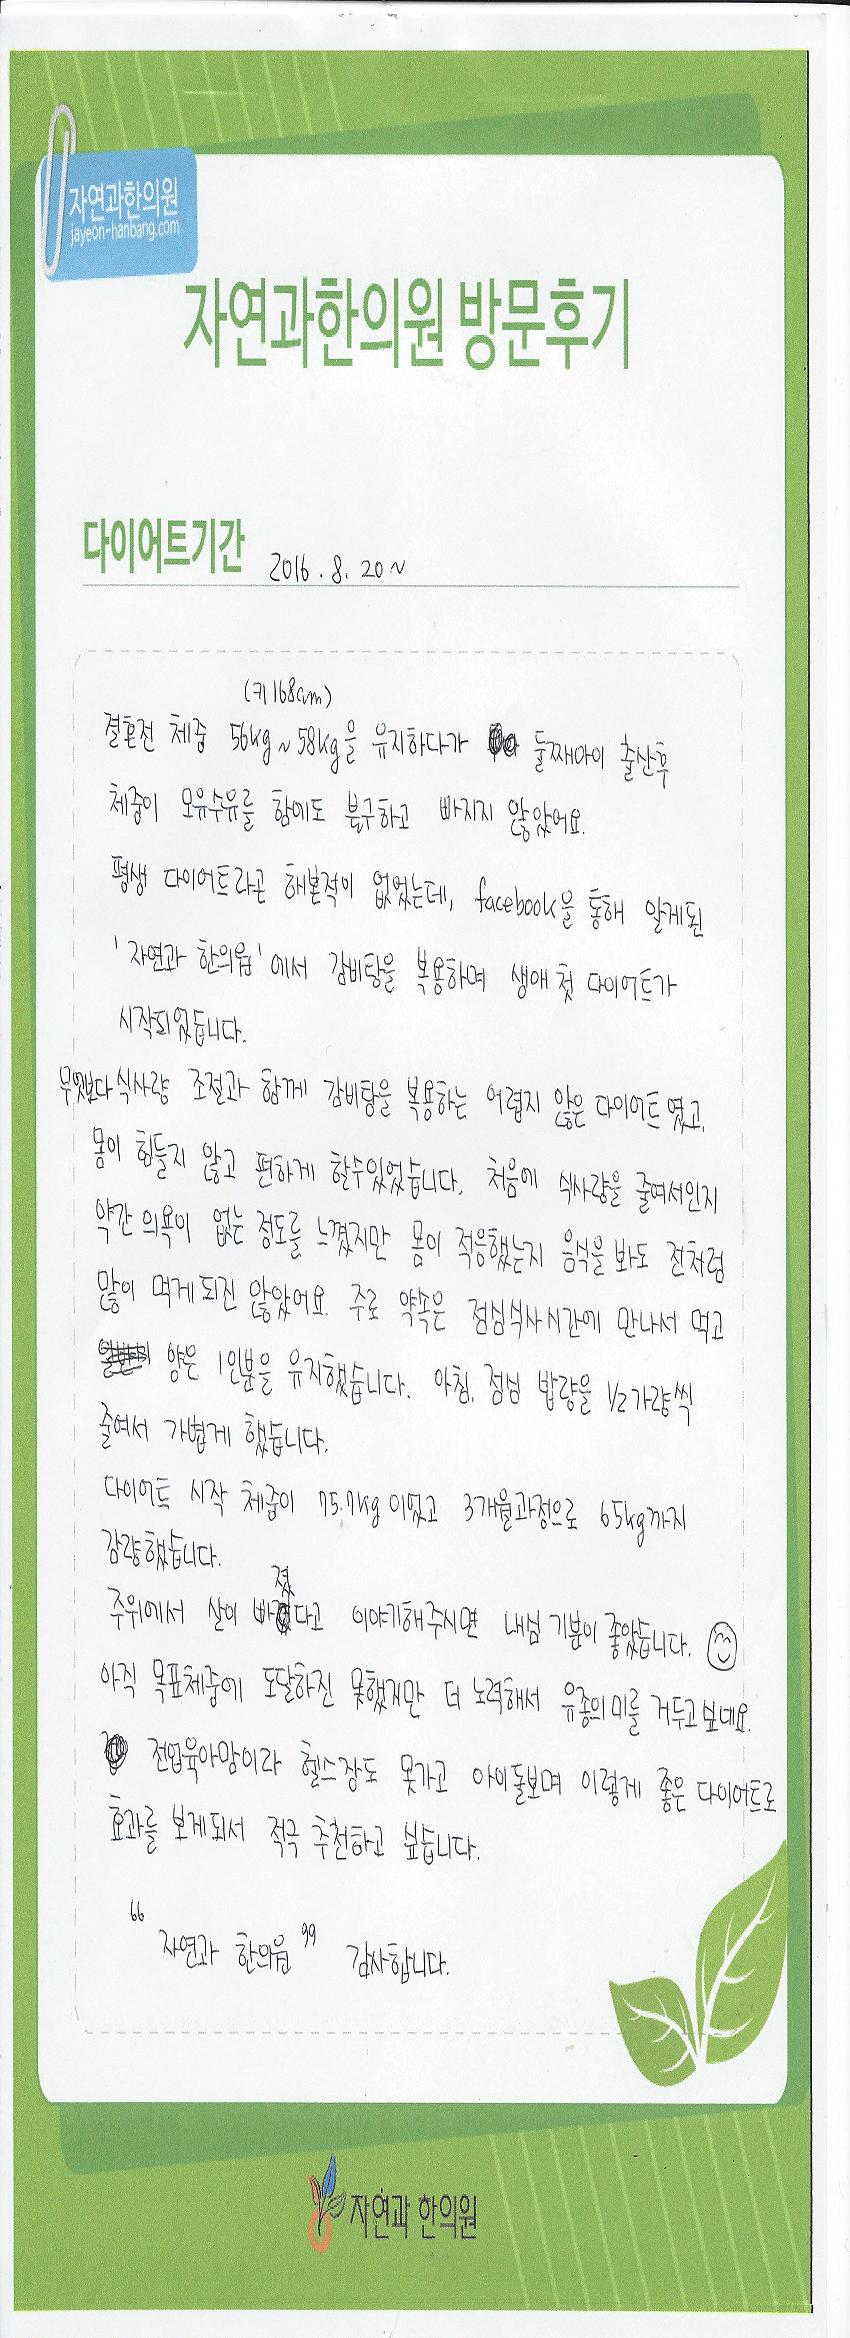 자연과한의원
jayeon-hanbang.com
자연과한의원 방문후기
다이어트기간 2016. 8. 20~
(키 168cm)
결혼전 체중 56kg~58kg을 유지하다가 둘째아이 출산후
체중이 모유수유를 함에도 불구하고 빠지지 않았어요.
평생 다이어트라곤 해본적이 없었는데, facebook을 통해 알게된
'자연과 한의원'에서 감비탕을 복용하며 생애 첫 다이어트가
시작되었습니다.
무엇보다 식사량 조절과 함께 감비탕을 복용하는 어렵지 않은 다이어트였고,
몸이 힘들지 않고 편하게 할수있었습니다. 처음에 식사량을 줄여서인지
약간 의욕이 없는 정도를 느꼈지만 몸이 적응했는지 음식을 봐도 전처럼
많이 먹게되진 않았어요. 주로 약속은 점심식사시간에 만나서 먹고
양은 1인분을 유지했습니다. 아침, 점심 밥량을 1/2가량씩
줄여서 가볍게 했습니다.
다이어트 시작 체중이 75.7kg이었고 3개월과정으로 65kg까지
감량했습니다.
주위에서 살이 빠졌다고 이야기해주시면 내심 기분이 좋았습니다.
아직 목표체중에 도달하진 못했지만 더 노력해서 유종의미를 거두고싶네요.
전업육아맘이라 헬스장도 못가고 아이돌보며 이렇게 좋은 다이어트로
효과를 보게되서 적극 추천하고 싶습니다.
"자연과 한의원" 감사합니다.
자연과 한의원